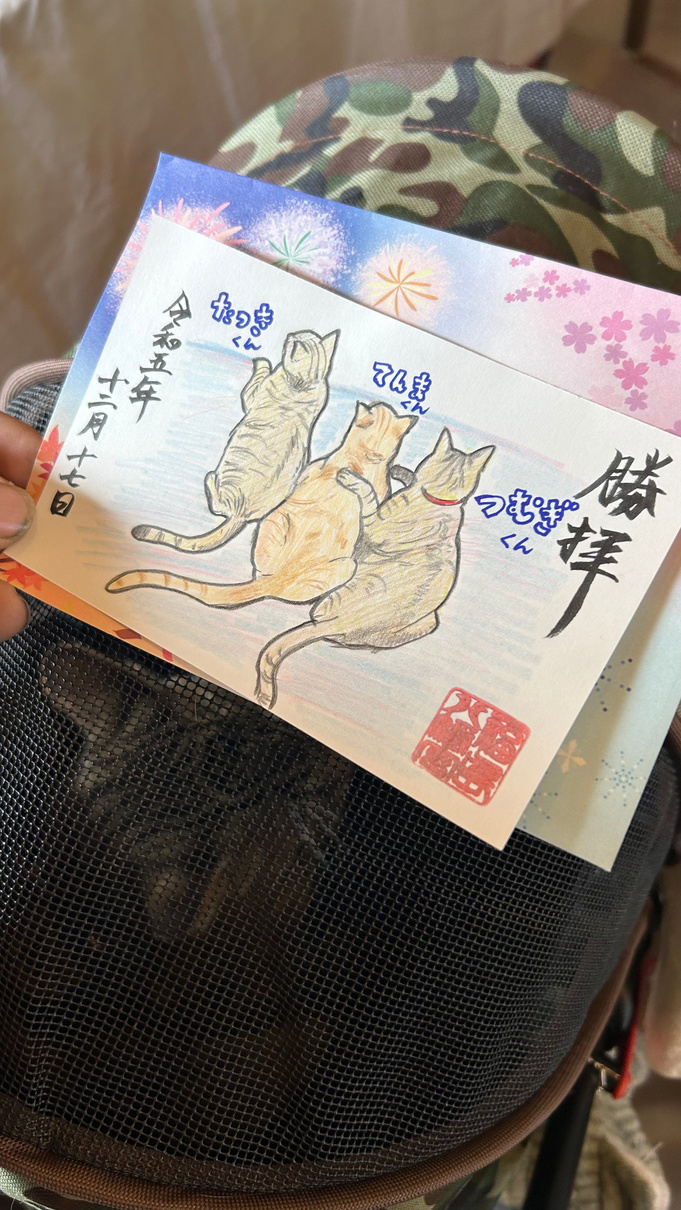 勝拝
つむぎ
くん
てんま
くん
なつき
くん
令和五年
十二月十七日